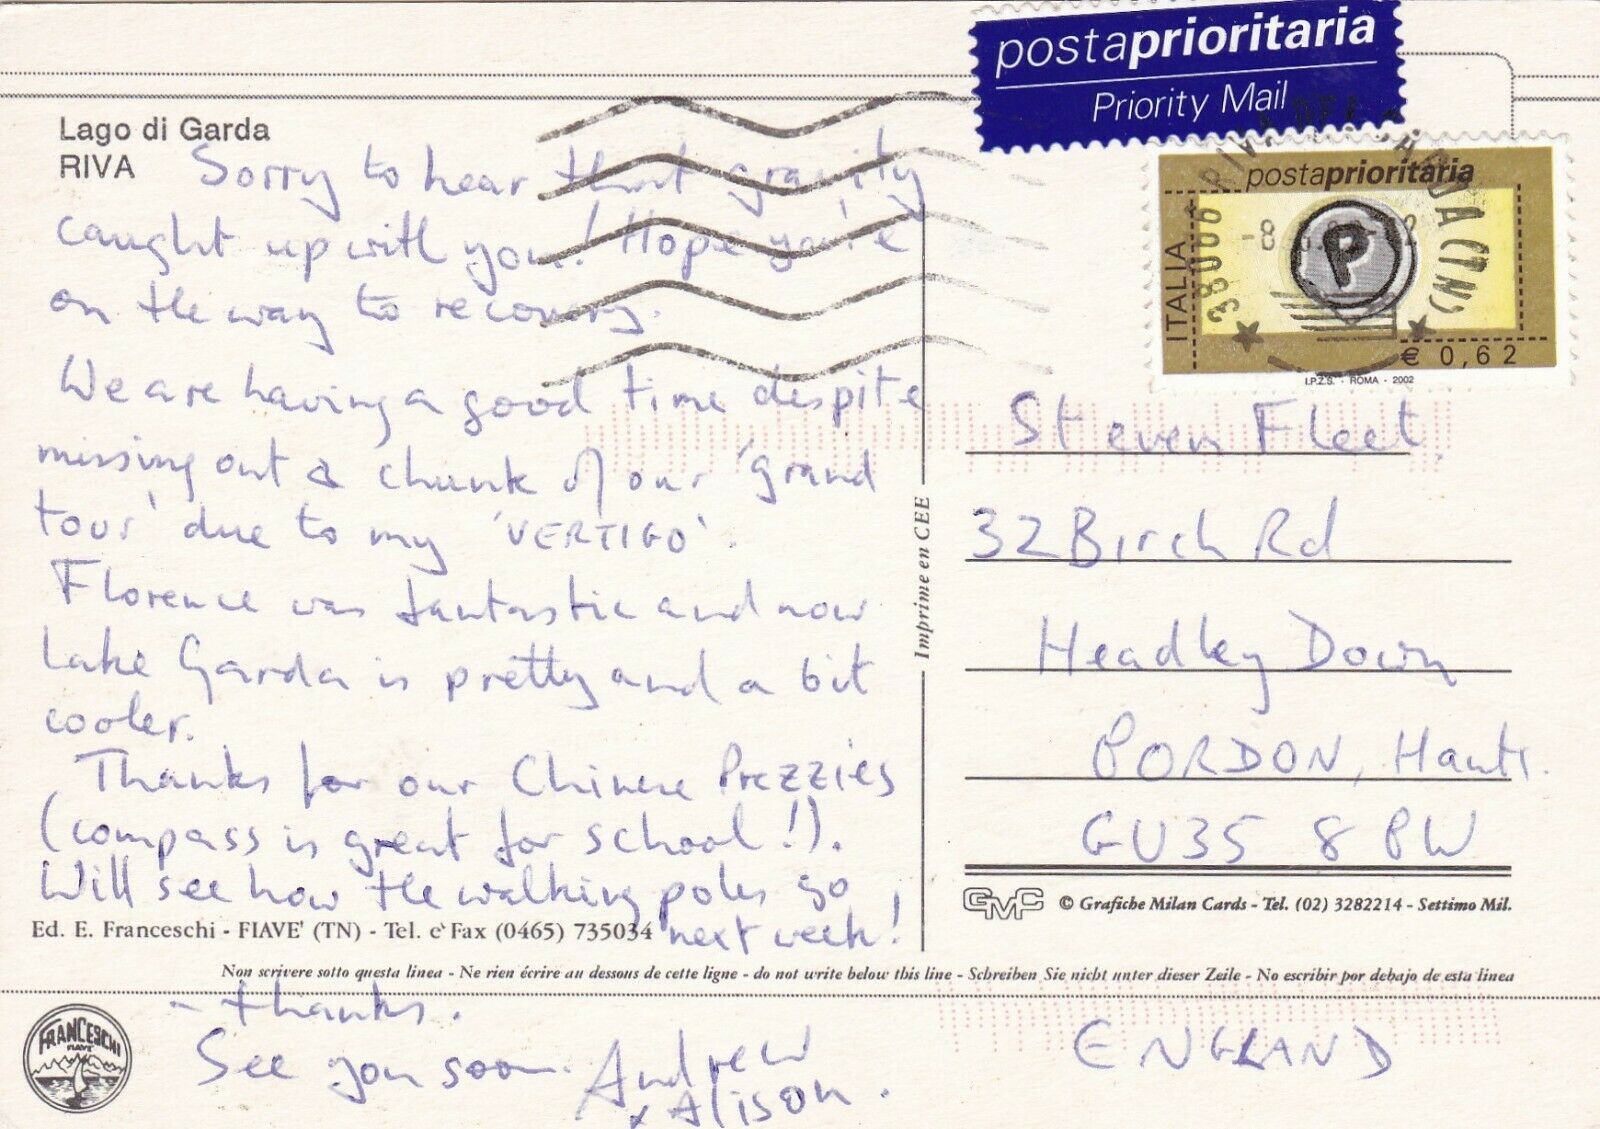 postaprioritaria
Priority Mail
Lago di Garda
RIVA
Sorry to hear that gravity
caught up with you! Hope you're
on the way to recovery.
We are having a good time despite
missing out a chunk of our 'grand
tour' due to my 'VERTIGO'.
Florence was fantastic and now
Lake Garda is pretty and a bit
cooler.
Thanks for our Chinese Prezzies
(compass is great for school!).
Will see how the walking poles go
next week!
- thanks.
See you soon. Andrew
x Alison.
Ed. E. Franceschi - FIAVE' (TN) - Tel. e Fax (0465) 735034
Imprime en CEE
postaprioritaria
ITALIA
P
€ 0,62
I.P.Z.S. - ROMA - 2002
38066 RIVA DEL GARDA (TN)
-8
Steven Fleet.
32 Birch Rd
Headley Down
BORDON, Hants.
GU35 8PW
ENGLAND
GMC © Grafiche Milan Cards - Tel. (02) 3282214 - Settimo Mil.
Non scrivere sotto questa linea - Ne rien écrire au dessous de cette ligne - do not write below this line - Schreiben Sie nicht unter dieser Zeile - No escribir por debajo de esta linea
FRANCESCHI
FIAVE'